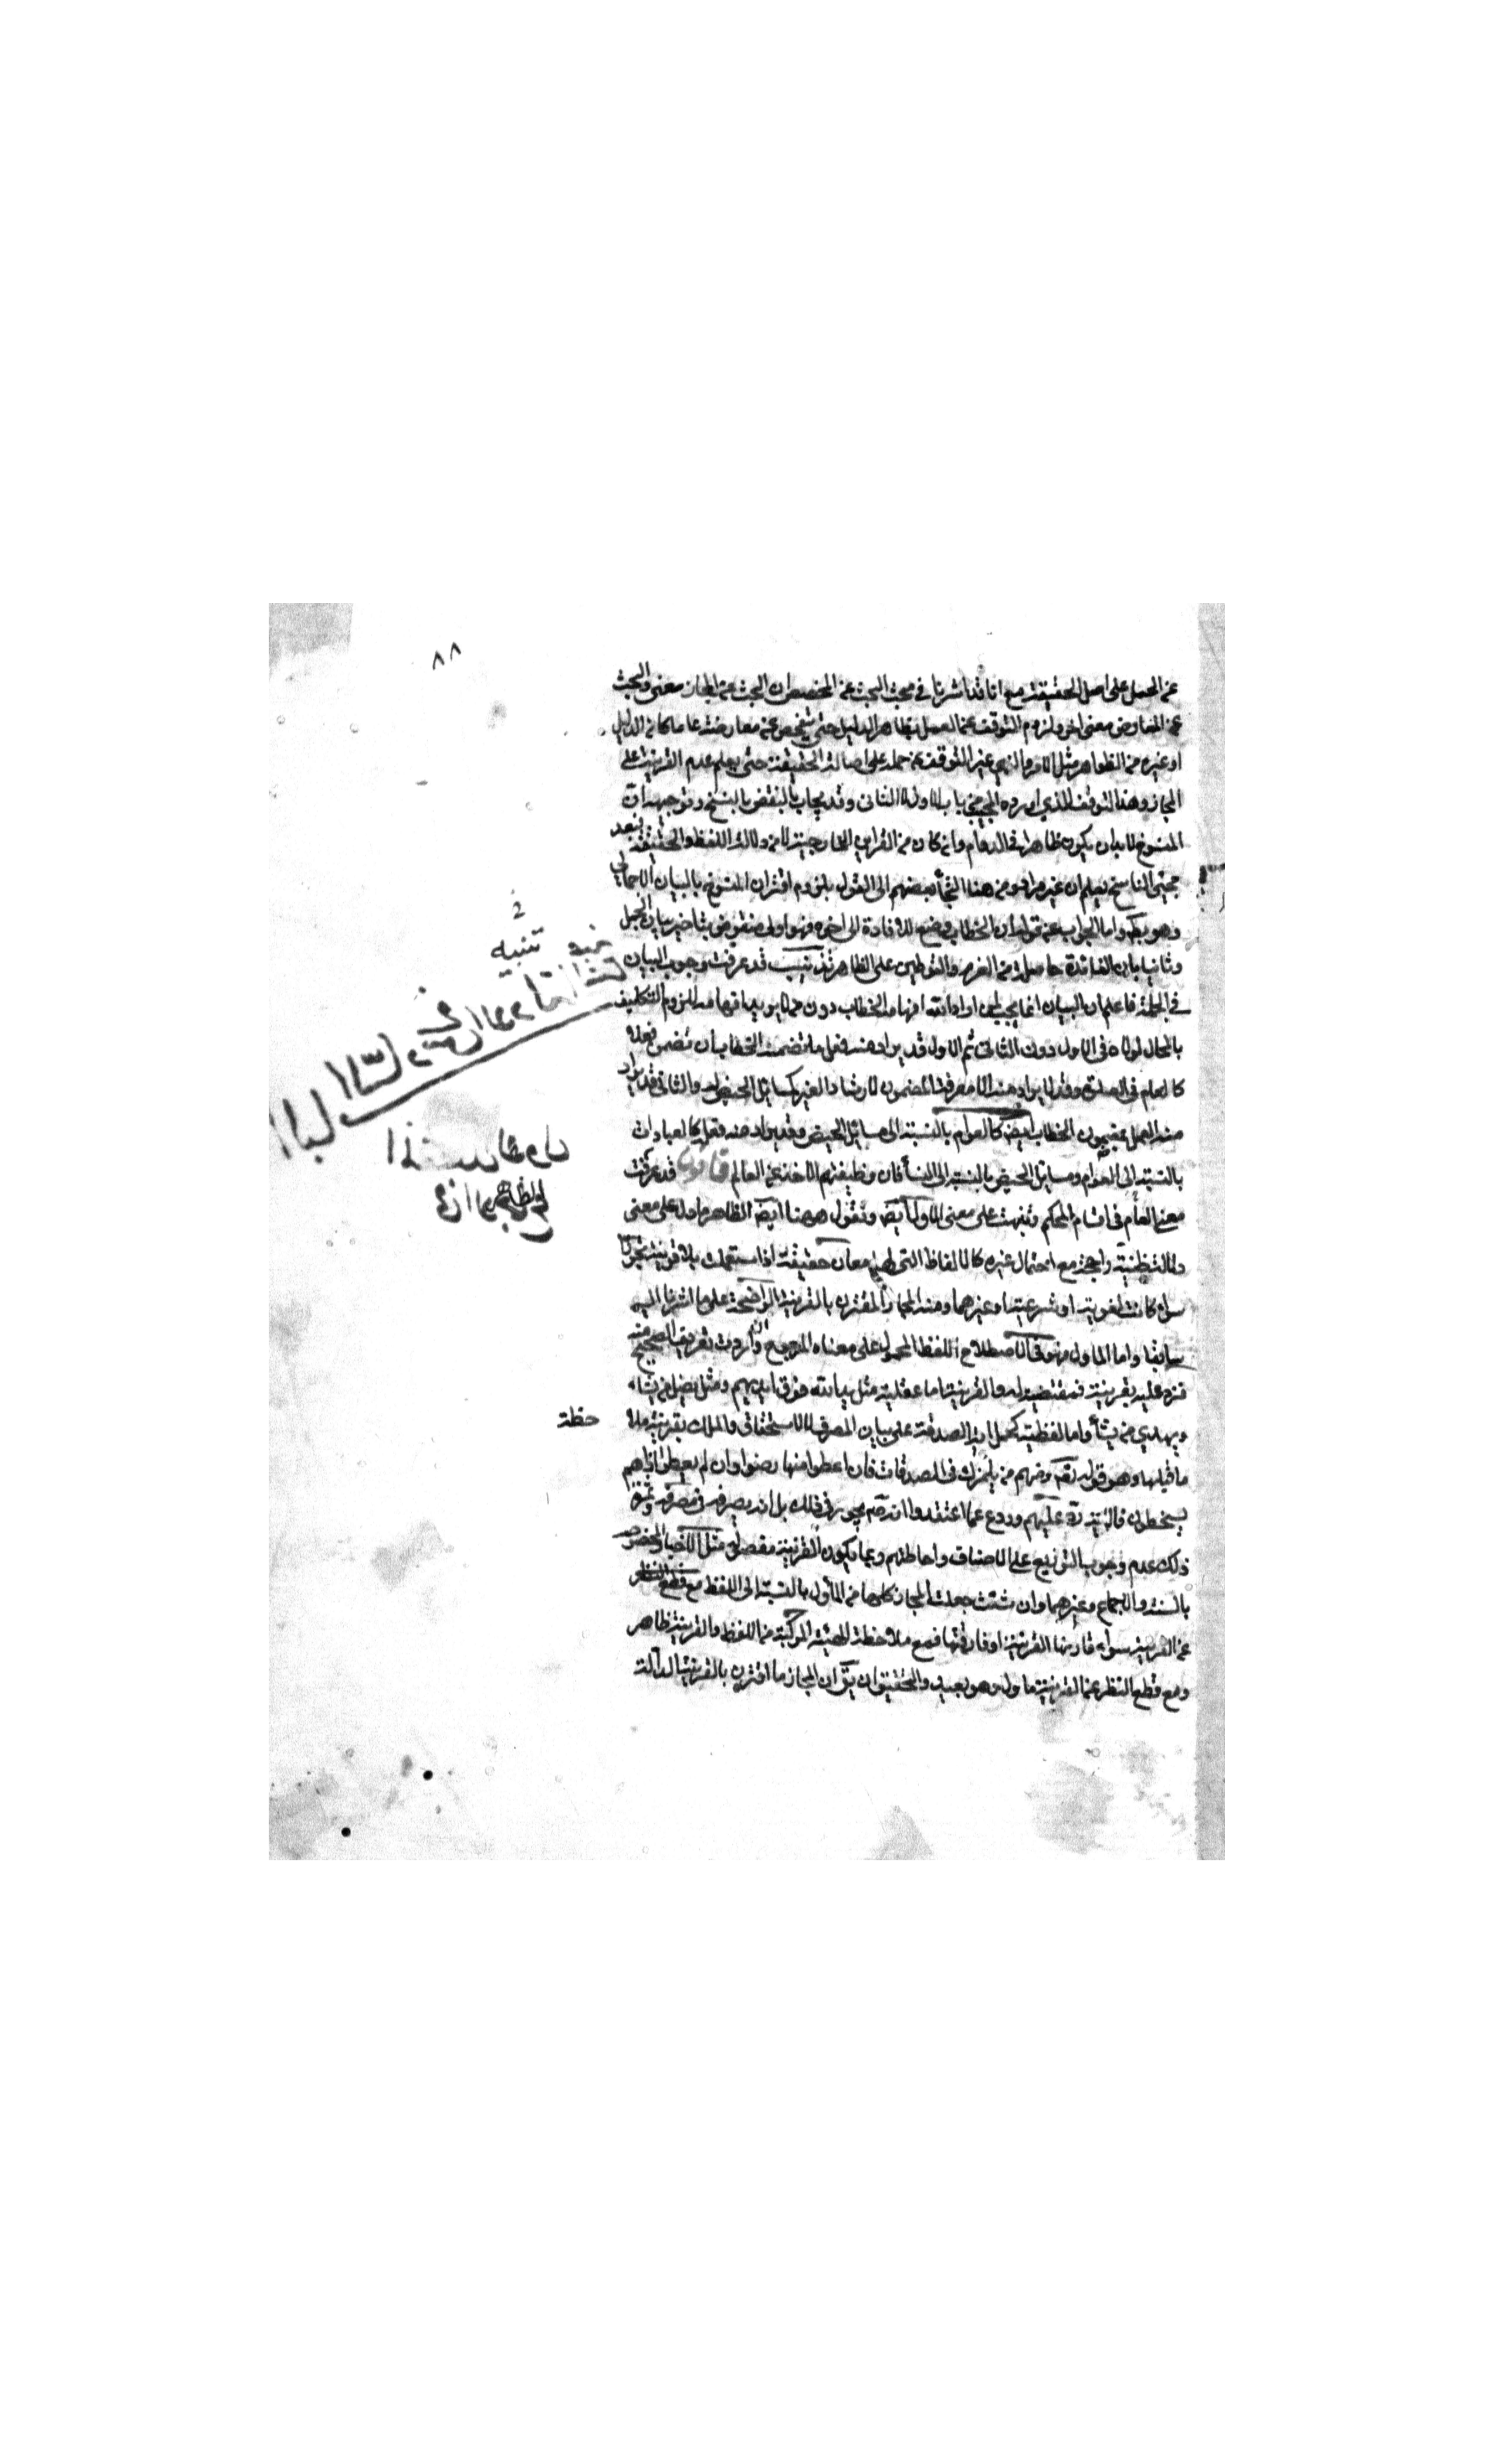 ٨٨
عن الحمل على اصل الحقيقة مع انا قد اشرنا في مبحث البحث عن المخصص ان البحث عن المجاز معنى والبحث
عن المعارض معنى اخر ولزوم التوقف عن العمل بظاهر الدليل حتى يتفحص عن معارضه عاما كان الدليل
او غيره من الظواهر مثل الامر والنهي غير التوقف عن حمله على اصالة الحقيقة حتى يعلم عدم القرينة على
المجاز وهذا التوقف الذي اورده المجيب من باب الاول لا الثاني وقد يجاب بالنقض بالنسخ وتوجيهه ان
المنسوخ لابد ان يكون ظاهرا في الدوام وان كان من القراين الخارجية لا من دلالة اللفظ والحقيقة فبعد
مجيئ الناسخ يعلم ان غيره مراد ومن هذا التجأ بعضهم الى القول بلزوم اقتران المنسوخ بالبيان الاجمالي
وهو بط واما الجواب عن قوله ان الخطاب وضع للافادة الى اخره فهو اولا منقوض بتاخير بيان المجمل
وثانيا بان الفائدة حاصلة من العزم والتوطين على الظاهر تذنيب قد عرفت وجوب البيان
في الجملة فاعلم ان البيان انما يجب لمن اراد الله افهامه الخطاب دون من لا يريد افهامه للزوم التكليف
بالمحال لولاه في الاول دون الثاني ثم الاول قد يراد منه فعل ما تضمنه الخطاب ان تضمن فعلا
كالعالم في الصلوة وقد لا يراد منه الا معرفة المضمون لارشاد الغير كمسائل الحيض له والثاني قد يراد
منه العمل بمضمون الخطاب ايض كالعوام بالنسبة الى مسائل الحيض وقد يراد منه فعل كالعبادات
بالنسبة الى العوام ومسايل الحيض بالنسبة الى النسأ فان وظيفتهم الاخذ عن العالم قانون قد عرفت
معنى العام في اقسام المحكم وتنبهت على معنى الماول ايض ونقول ههنا ايض الظاهر ما دل على معنى
دلالة ظنية راجحة مع احتمال غيره كالالفاظ التي لها معان حقيقة اذا استعملت بلا قرينة تجوز
سواء كانت لغوية او شرعية او غيرهما ومنه المجاز المقترن بالقرينة الواضحة على ما اشرنا اليه
سابقا واما الماول فهو في الاصطلاح اللفظ المحمول على معناه المرجوح وان اردت تعريف الصحيح منه
فزد عليه بقرينة مقتضية له والقرينة اما عقلية مثل يد الله فوق ايديهم ومثل يضل من يشاء
ويهدي من يشأ واما لفظية كحمل اية الصدقة على بيان المصرف لا الاستحقاق والملك بقرينة ملا
حظة
ما قبلها وهو قوله تع ومنهم من يلمزك في الصدقات فان اعطوا منها رضوا وان لم يعطوا اذا هم
يسخطون فالاية رد عليهم وردع عما اعتقدوا انه ص يجور في ذلك بل انه يصرفه في مصرفه وثمرة
ذلك عدم وجوب التوزيع على الاصناف واحاطتهم وربما يكون القرينة مفصولة مثل الاخبار المخصص
بالسنة والاجماع وغيرهما وان شئت جعلت المجاز كلها من المأول بالنسبة الى اللفظ مع قطع النظر
عن القرينة سواء قارنها القرينة او فارقتها فمع ملاحظة الهيئة المركبة من اللفظ والقرينة ظاهر
ومع قطع النظر عن القرينة ماول وهو بعيد والتحقيق ان يق ان المجاز ما اقترن بالقرينة الدالة
تنبيه